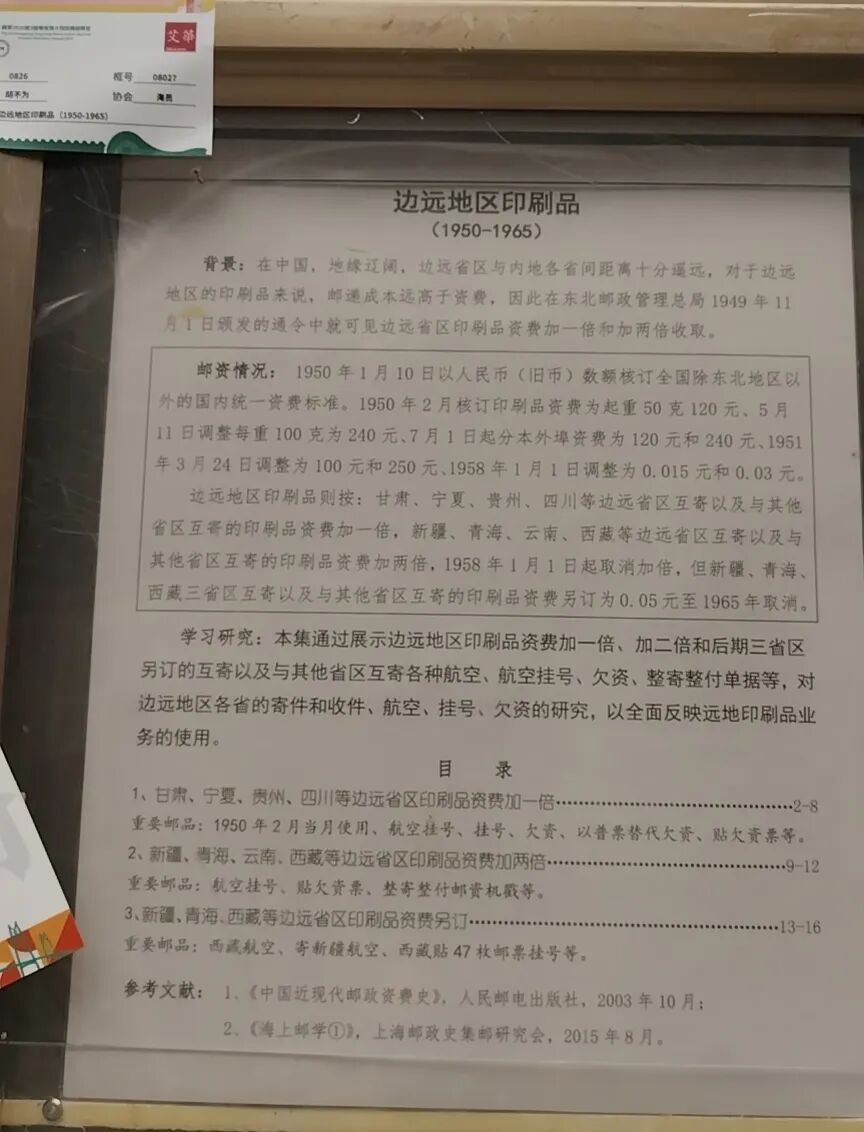 艾華
0826
框号 08027
胡不为
协会 海员
边远地区印刷品（1950-1965）
边远地区印刷品
（1950-1965）
背景：在中国，地缘辽阔，边远省区与内地各省间距离十分遥远，对于边远
地区的印刷品来说，邮递成本远高于资费，因此在东北邮政管理总局 1949 年 11
月 1 日颁发的通令中就可见边远省区印刷品资费加一倍和加两倍收取。
邮资情况： 1950 年 1 月 10 日以人民币（旧币）数额核订全国除东北地区以
外的国内统一资费标准。1950 年 2 月核订印刷品资费为起重 50 克 120 元、5 月
11 日调整每重 100 克为 240 元、7 月 1 日起分本外埠资费为 120 元和 240 元、1951
年 3 月 24 日调整为 100 元和 250 元、1958 年 1 月 1 日调整为 0.015 元和 0.03 元。
边远地区印刷品则按：甘肃、宁夏、贵州、四川等边远省区互寄以及与其他
省区互寄的印刷品资费加一倍，新疆、青海、云南、西藏等边远省区互寄以及与
其他省区互寄的印刷品资费加两倍，1958 年 1 月 1 日起取消加倍，但新疆、青海、
西藏三省区互寄以及与其他省区互寄的印刷品资费另订为 0.05 元至 1965 年取消。
学习研究：本集通过展示边远地区印刷品资费加一倍、加二倍和后期三省区
另订的互寄以及与其他省区互寄各种航空、航空挂号、欠资、整寄整付单据等，对
边远地区各省的寄件和收件、航空、挂号、欠资的研究，以全面反映远地印刷品业
务的使用。
目 录
1、甘肃、宁夏、贵州、四川等边远省区印刷品资费加一倍……………………………2-8
重要邮品：1950 年 2 月当月使用、航空挂号、挂号、欠资、以普票替代欠资、贴欠资票等。
2、新疆、青海、云南、西藏等边远省区印刷品资费加两倍……………………………9-12
重要邮品：航空挂号、贴欠资票、整寄整付邮资机戳等。
3、新疆、青海、西藏等边远省区印刷品资费另订……………………………………13-16
重要邮品：西藏航空、寄新疆航空、西藏贴 47 枚邮票挂号等。
参考文献： 1、《中国近现代邮政资费史》，人民邮电出版社，2003 年 10 月；
2、《海上邮学①》，上海邮政史集邮研究会，2015 年 8 月。